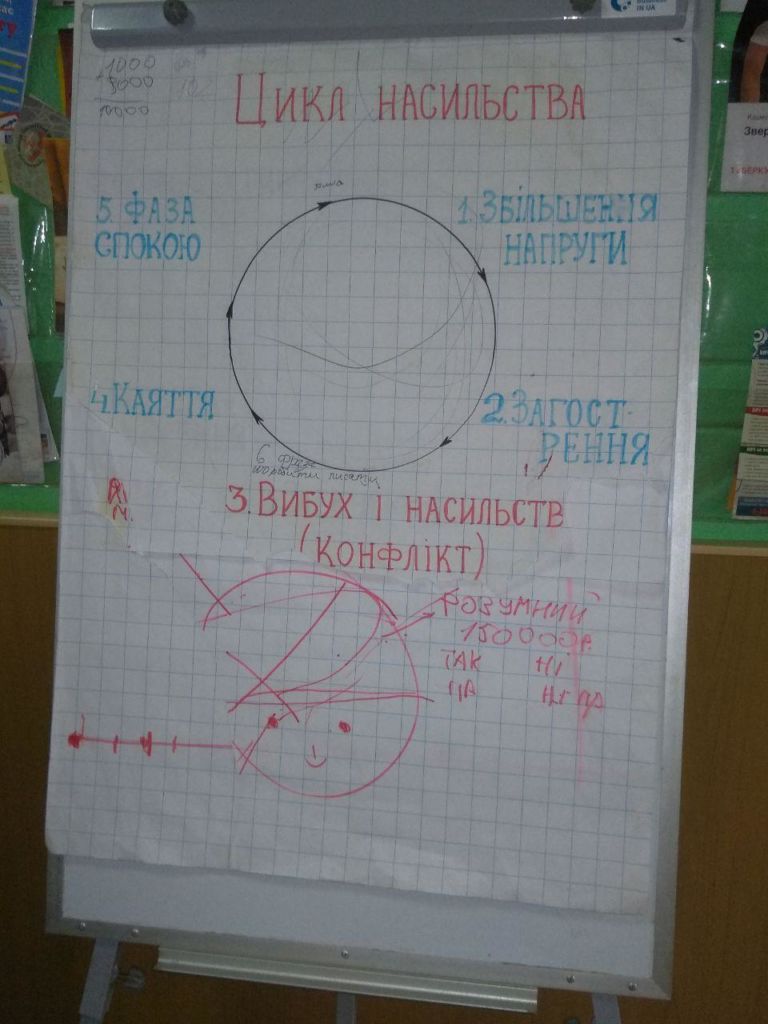 IN UA
1000
9000
10000
Цикл насильства
5. Фаза
спокою
1. Збільшення
напруги
4. Каяття
2. Загост-
рення
6 фаза
3. Вибух і насильств
(конфлікт)
Розумний
150000
ТАК НІ